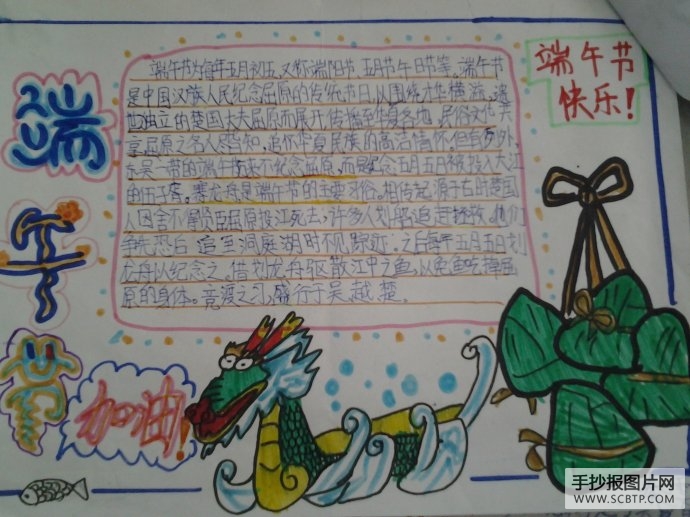 端午节
端午节
快乐!
端午节为每年五月初五,又称端阳节、五月节午日节等。端午节
是中国汉族人民纪念屈原的传统节日,从围绕才华横溢、遗
世独立的楚国大夫屈原而展开,传播至华夏各地,民俗文化共
享屈原之名人尽皆知,追怀华夏民族的高洁情怀。但有例外,
东吴一带的端午节来不纪念屈原,而是纪念五月五日被投入大江
的伍子胥。赛龙舟是端午节的主要习俗。相传起源于古时楚国
人因舍不得贤臣屈原投江死去,许多人划船追赶拯救。他们
争先恐后 追至洞庭湖时不见踪迹。之后每年五月五日划
龙舟以纪念之。借划龙舟驱散江中之鱼,以免鱼吃掉屈
原的身体。竞渡之习,盛行于吴、越、楚。
加油!
手抄报图片网
WWW.SCBTP.COM